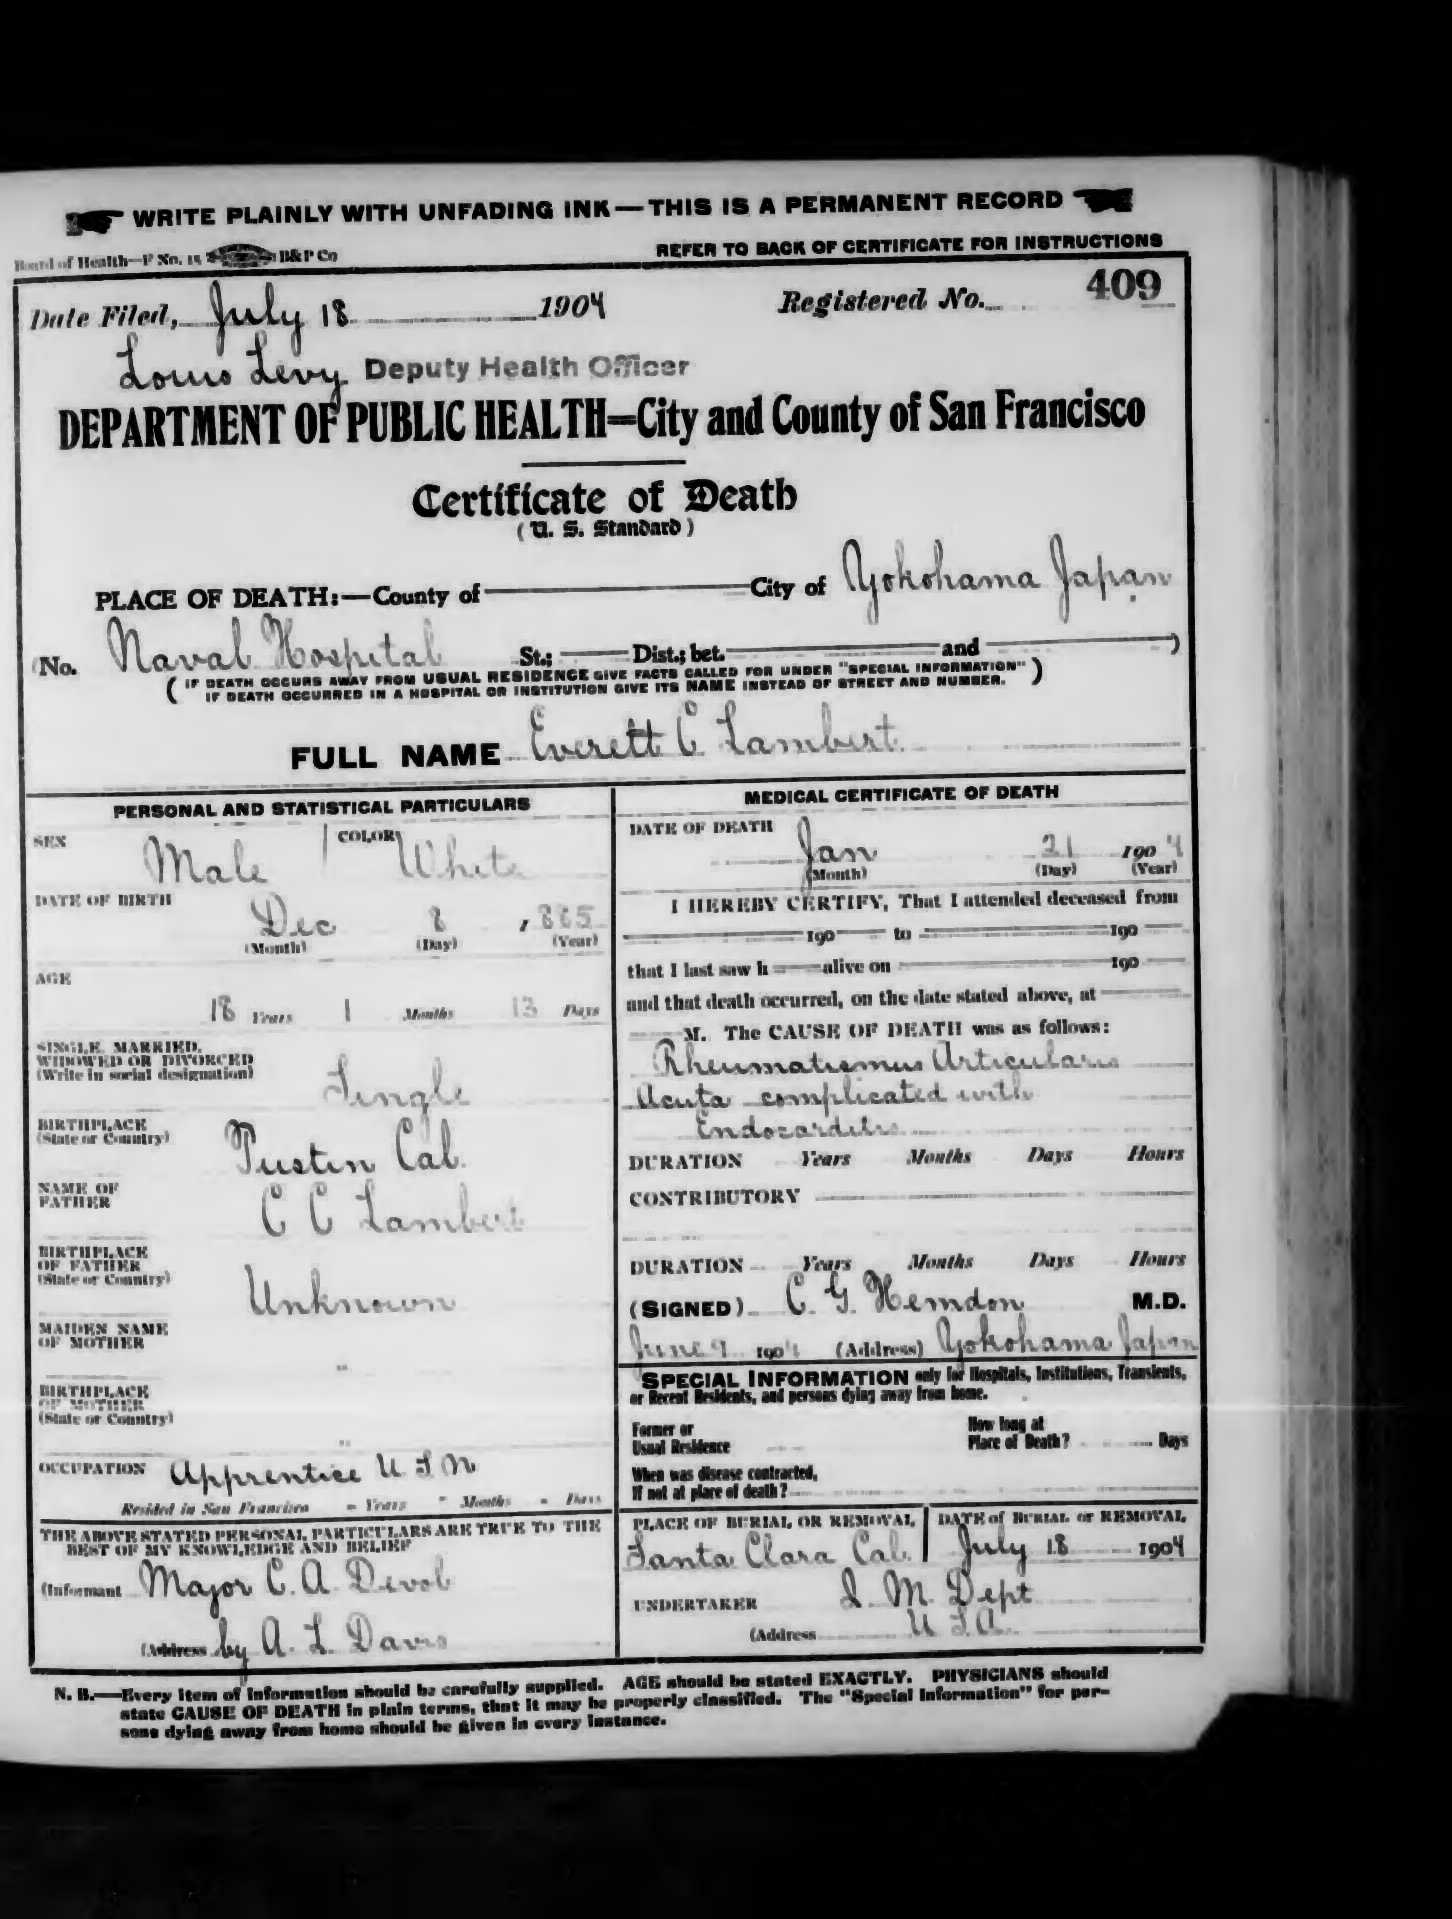 WRITE PLAINLY WITH UNFADING INK—THIS IS A PERMANENT RECORD
Board of Health—F No. 15 B&P Co
REFER TO BACK OF CERTIFICATE FOR INSTRUCTIONS
Date Filed, July 18 1904
Registered No. 409
Louis Levy Deputy Health Officer
DEPARTMENT OF PUBLIC HEALTH=City and County of San Francisco
Certificate of Death
(U. S. Standard)
PLACE OF DEATH:—County of City of Yokohama Japan
(No. Naval Hospital St.; Dist.; bet. and )
( IF DEATH OCCURS AWAY FROM USUAL RESIDENCE GIVE FACTS CALLED FOR UNDER "SPECIAL INFORMATION" )
IF DEATH OCCURRED IN A HOSPITAL OR INSTITUTION GIVE ITS NAME INSTEAD OF STREET AND NUMBER.
FULL NAME Everett C Lambert
PERSONAL AND STATISTICAL PARTICULARS
SEX Male COLOR White
DATE OF BIRTH
Dec 8 , 1885
(Month) (Day) (Year)
AGE
18 Years 1 Months 13 Days
SINGLE, MARRIED,
WIDOWED OR DIVORCED
(Write in social designation) Single
BIRTHPLACE
(State or Country) Tustin Cal.
NAME OF
FATHER C C Lambert
BIRTHPLACE
OF FATHER
(State or Country) Unknown
MAIDEN NAME
OF MOTHER
"
BIRTHPLACE
OF MOTHER
(State or Country)
"
OCCUPATION Apprentice U S N
Resided in San Francisco - Years - Months - Days
THE ABOVE STATED PERSONAL PARTICULARS ARE TRUE TO THE
BEST OF MY KNOWLEDGE AND BELIEF
(Informant Major C. A. Devol
(Address by A. L. Davis
MEDICAL CERTIFICATE OF DEATH
DATE OF DEATH
Jan 21 1904
(Month) (Day) (Year)
I HEREBY CERTIFY, That I attended deceased from
190 to 190
that I last saw h alive on 190
and that death occurred, on the date stated above, at
M. The CAUSE OF DEATH was as follows:
Rheumatismus Articularis
Acuta complicated with
Endocarditis
DURATION Years Months Days Hours
CONTRIBUTORY
DURATION Years Months Days Hours
(SIGNED) C. G. Herndon M.D.
June 9 1904 (Address) Yokohama Japan
SPECIAL INFORMATION only for Hospitals, Institutions, Transients,
or Recent Residents, and persons dying away from home.
Former or
Usual Residence
How long at
Place of Death? Days
When was disease contracted,
If not at place of death?
PLACE OF BURIAL OR REMOVAL
Santa Clara Cal.
DATE of BURIAL or REMOVAL
July 18 1904
UNDERTAKER Q. M. Dept
(Address U S A.
N. B.—Every item of information should be carefully supplied. AGE should be stated EXACTLY. PHYSICIANS should
state CAUSE OF DEATH in plain terms, that it may be properly classified. The "Special Information" for per-
sons dying away from home should be given in every instance.